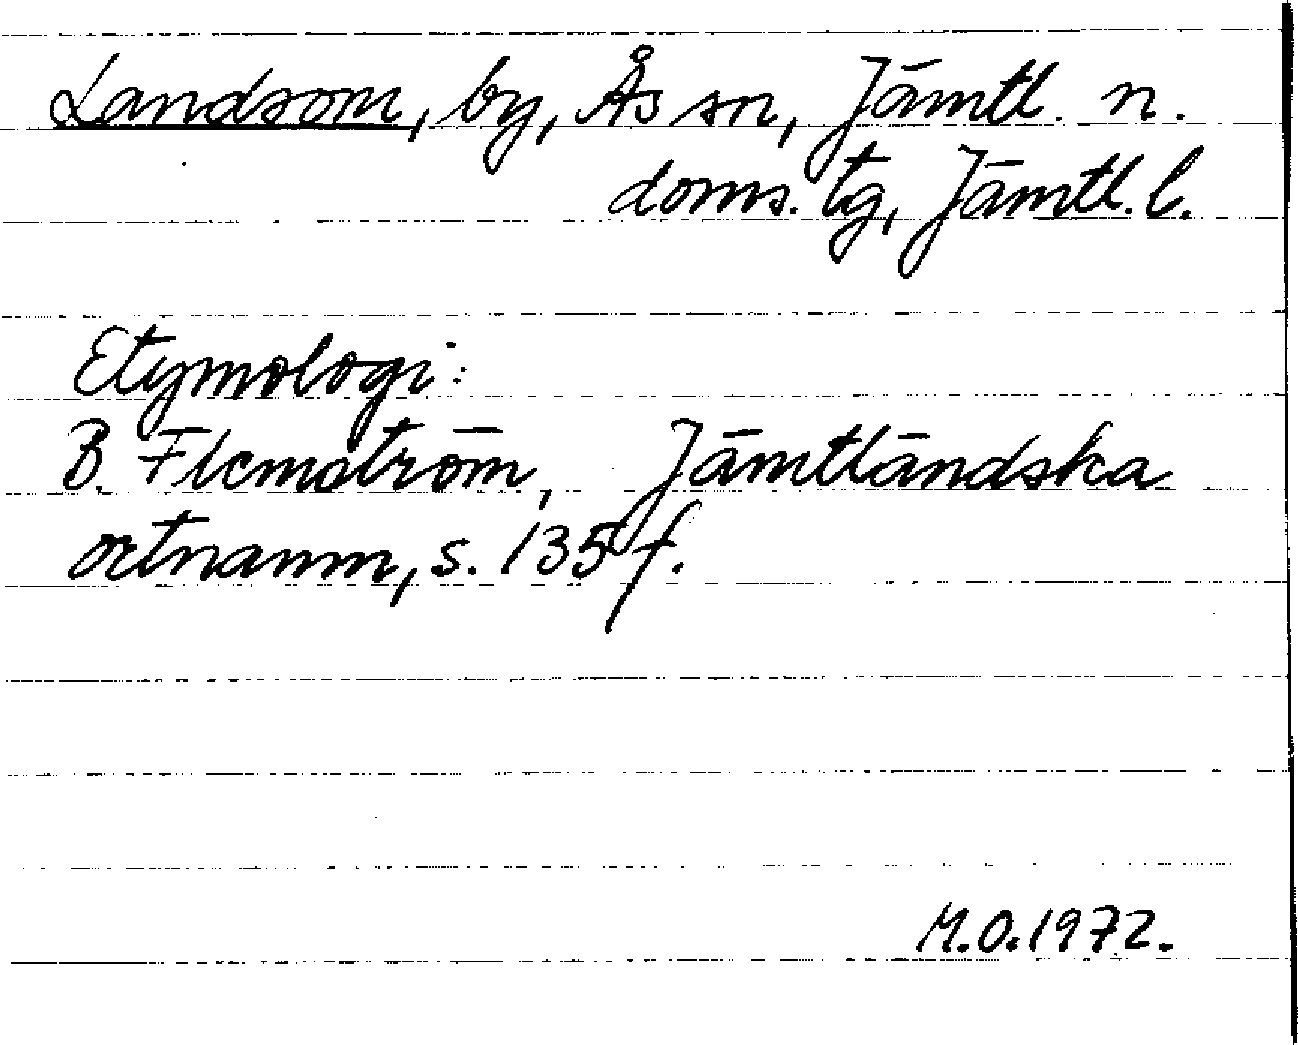 Landsom, by, Ås sn, Jämtl. n.
doms. tg, Jämtl. l.
Etymologi:
B. Flemström, Jämtländska
ortnamn, s. 135 f.
M.O. 1972.